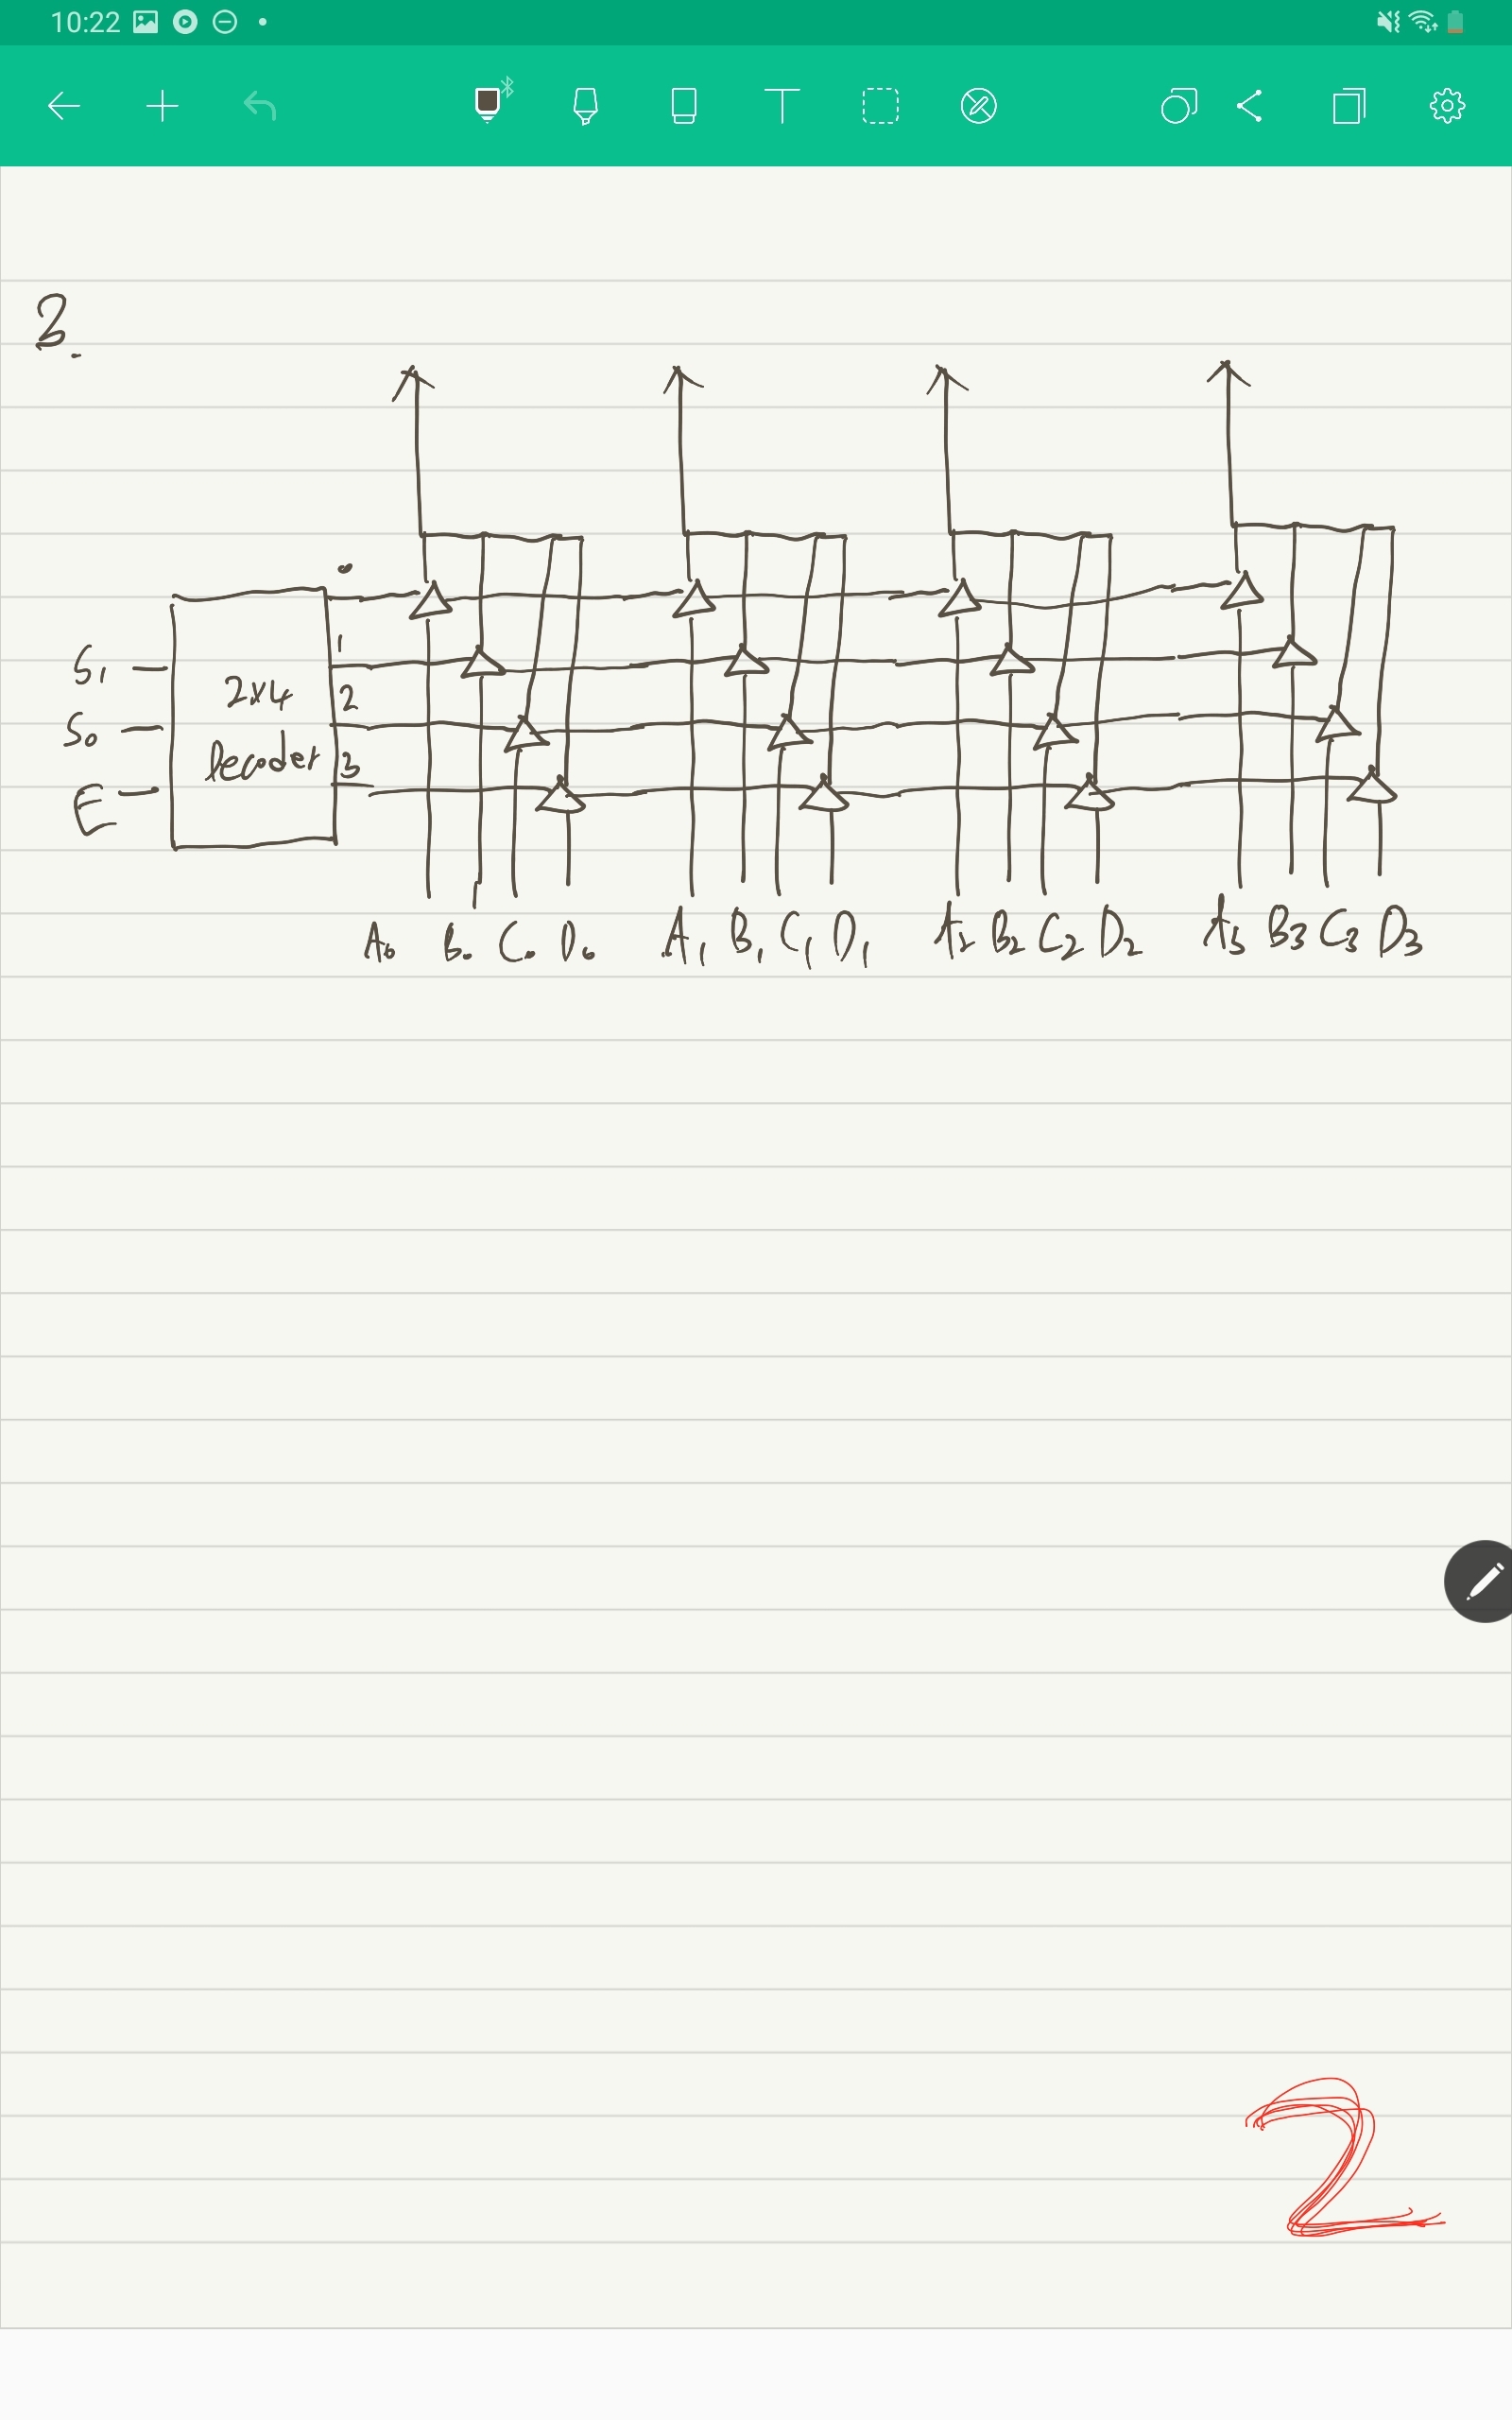 10:22
3.
0
1
S1 2x4 2
S0 Decoder 3
E
A0 B0 C0 D0 A1 B1 C1 D1 A2 B2 C2 D2 A3 B3 C3 D3
2